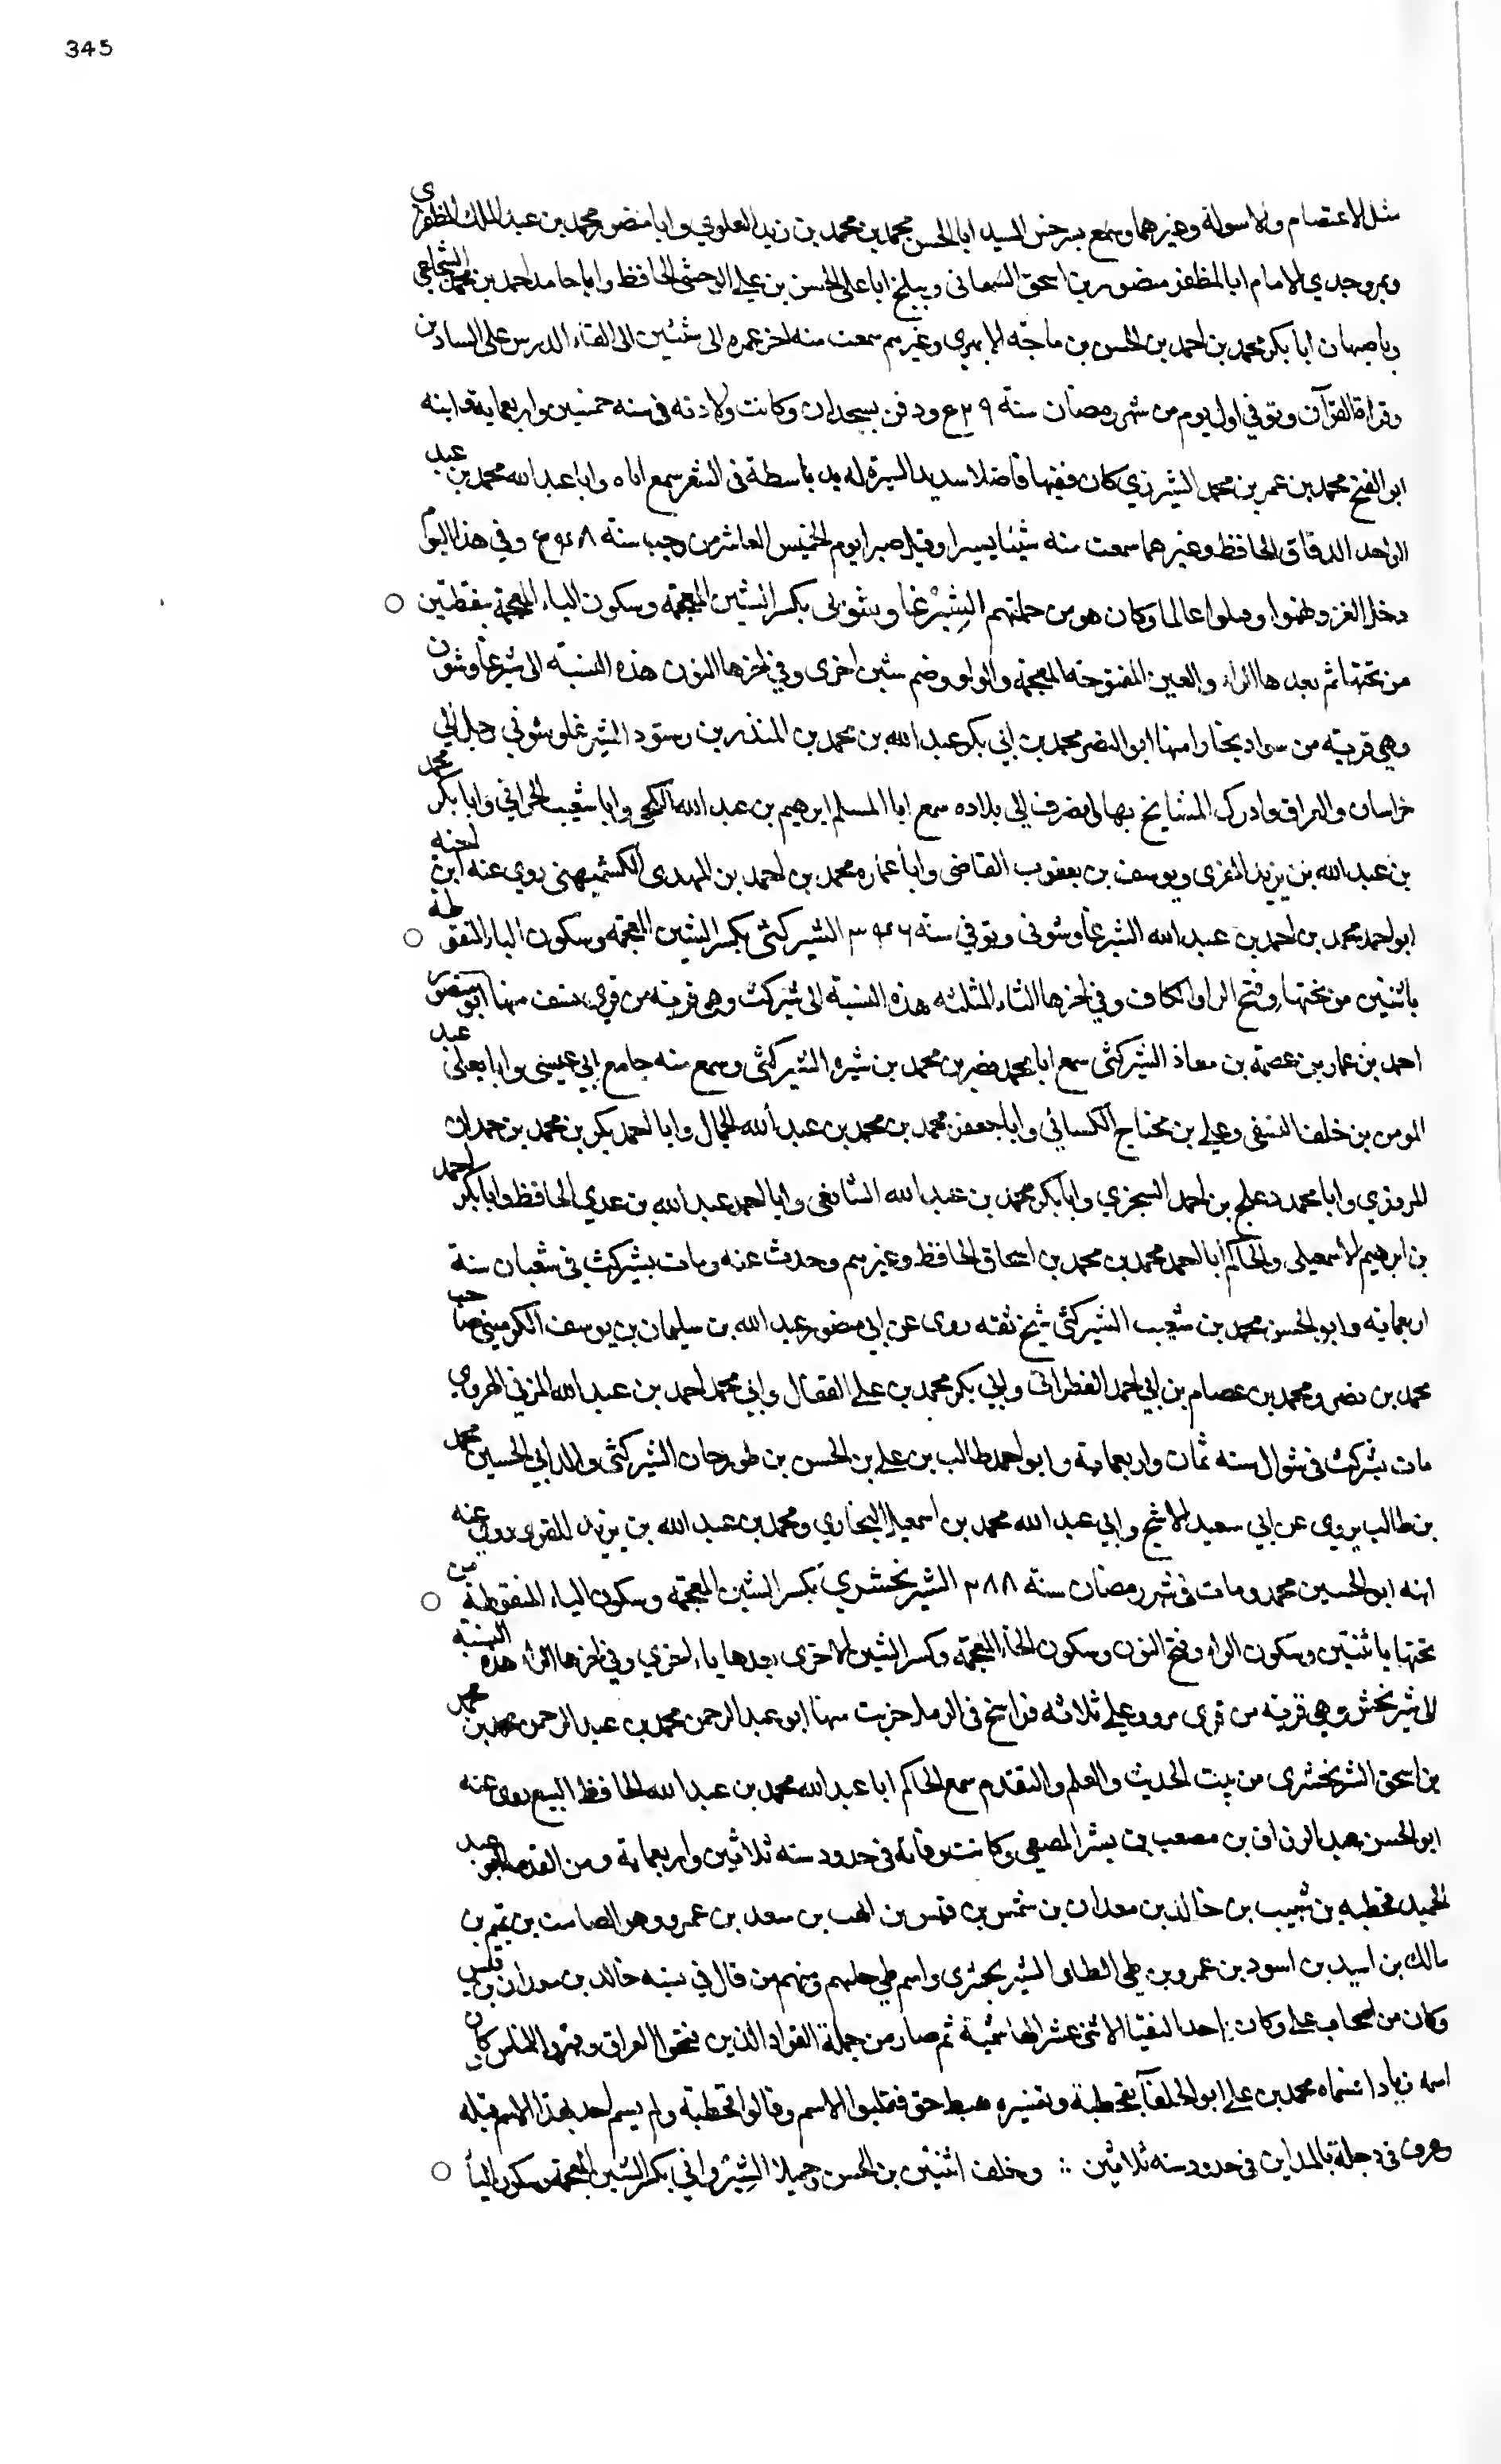 345
مثل الاعتصام والاسولة وغيرهما وسمع بسرخس السيد ابا الحسن محمد بن محمد بن زيد العلوي وابا منصور محمد بن عبد الملك المظفري
وبمرو جدي الامام ابا المظفر منصور بن اسحق السمعاني وببلخ ابا علي الحسن بن علي الوخشي الحافظ وابا حامد احمد بن محمد الشجاعي
وباصبهان ابا بكر محمد بن احمد بن الحسن بن ماجه الابهري وغيرهم سمعت منه اخر عمره الى شيئين الى القاء الدرس على السادين
وقراة القرآن وتوفي اول يوم من شهر رمضان سنة ٥٢٩ ودفن بسجدان وكانت ولادته في سنه خمسين واربعماية وابنه
ابو الفتح محمد بن عمر بن محمد الشيرزي كان فقيها فاضلا سديد السيرة له يد باسطة في الشعر سمع اباه وابا عبد الله محمد بن عبد
الواحد الدقاق الحافظ وغيرهما سمعت منه شيئا يسيرا وقتل صبرا يوم الخميس العاشر من رجب سنة ٥٤٨ وفي هذا اليوم
دخل الغز وقتلوا عالما وكان هو من جملتهم الشيرغاوشوني بكسر الشين المعجمة وسكون الياء المعجمة بنقطتين
من تحتها ثم بعدها الراء والغين المفتوحة المعجمة والواو وضم شين اخرى وفي اخرها النون هذه النسبة الى شيرغاوشون
وهي قرية من سواد بخارا منها ابو النضر محمد بن ابي بكر عبد الله بن محمد بن المنذر بن رستود الشيرغاوشوني رحل الى
خراسان والعراق وادرك المشايخ بها وانصرف الى بلاده سمع ابا المسلم ابرهيم بن عبد الله الكجي وابا شعيب الحراني وابا بكر محمد
بن عبد الله بن يزيد المقري ويوسف بن يعقوب القاضي وابا عماره محمد بن احمد بن المهدي الكشميهني روي عنه ابن اخيه
ابو احمد محمد بن احمد بن عبد الله الشيرغاوشوني وتوفي سنة ٣٤٦ الشيركثي بكسر الشين المعجمه وسكون الياء المنقوطة
باثنتين من تحتها وفتح الراء والكاف وفي اخرها الثاء المثلثه هذه النسبة الى شيركث وهي قرية من قري نسف منها ابو منصور
احمد بن عمار بن عصمة بن معاذ الشيركثي سمع ابا محمد نصر بن محمد بن شيره الشيركثي وسمع منه جامع ابي عيسى وابا يعلى عبد
المومن بن خلف النسفي وعلي بن محتاج الكسائي وابا جعفر محمد بن محمد بن عبد الله الجمال وابا احمد بكر بن محمد بن حمدان
المروزي وابا محمد دعلج بن احمد السجزي وابا بكر محمد بن عبد الله الشافعي وابا احمد عبد الله بن عدي الحافظ وابا بكر احمد
بن ابرهيم الاسمعيلي والحاكم ابا احمد محمد بن محمد بن اسحاق الحافظ وغيرهم وحدث عنه ومات بشيركث في شعبان سنة
اربعماية وابو الحسن محمد بن شعيب الشيركثي شيخ ثقه روى عن ابي منصور عبد الله بن سليمان بن يوسف الكرميني صاحب
محمد بن نصر ومحمد بن عصام بن ابي احمد القطراني وابي بكر محمد بن علي القفال وابي محمد احمد بن عبد الله المزني الهروي
مات بشيركث في شوال سنه ثمان واربعماية وابو احمد طالب بن علي بن الحسن بن طورجان الشيركثي والد ابي الحسين محمد
بن طالب يروي عن ابي سعيد الاشج وابي عبد الله محمد بن اسمعيل البخاري ومحمد بن عبد الله بن يزيد المقري روي عنه
ابنه ابو الحسين محمد ومات في شهر رمضان سنة ٢٨٨ الشيرنخشيري بكسر الشين المعجمة وسكون الياء المنقوطة من
تحتها باثنتين وسكون الراء وفتح النون وسكون الخاء المعجمة وكسر الشين الاخرى بعدها ياء اخري وفي اخرها الراء هذه النسبة
الى شيرنخشير وهي قرية من قرى مرو على ثلاثه فراسخ في الرمل خربت منها ابو عبد الرحمن محمد بن عبد الرحمن بن محمد
بن اسحق الشيرنخشيري من بيت الحديث والعلم والتقدم سمع الحاكم ابا عبد الله محمد بن عبد الله الحافظ البيع روى عنه
ابو الحسن عبد الرزاق بن مصعب بن بشر المصعبي وكانت وفاته في حدود سنه ثلاثين واربعماية ومن القدماء عبد
الحميد قحطبه بن شبيب بن خالد بن معدان بن شمس بن قيس بن اكلب بن سعد بن عمرو وهو الصامت بن تميم بن
مالك بن اسيد بن اسود بن عمرو بن طي الطاي الشيرنخشيري واسم طي جلهم ومنهم من قال في نسبه خالد بن معدان بن قيس
وكان من اصحاب علي وكان احد النقبا الاثني عشر الهاشمية ثم صار من جملة القواد الذين فتحوا العراق وقهروا الناس كان
اسمه زيادا فسماه محمد بن علي ابو الخلفآ بقحطبة وتفسيره هبط حق فقلبوا الاسم وقالوا قحطبة ولم يسم احد بهذا الاسم قبله
وغرق في دجلة بالمداين في حدود سنه ثلاثين ∴ وخلف اثنين بن الحسن وحميدا الشيرواني بكسر الشين المعجمة وسكون اليأ